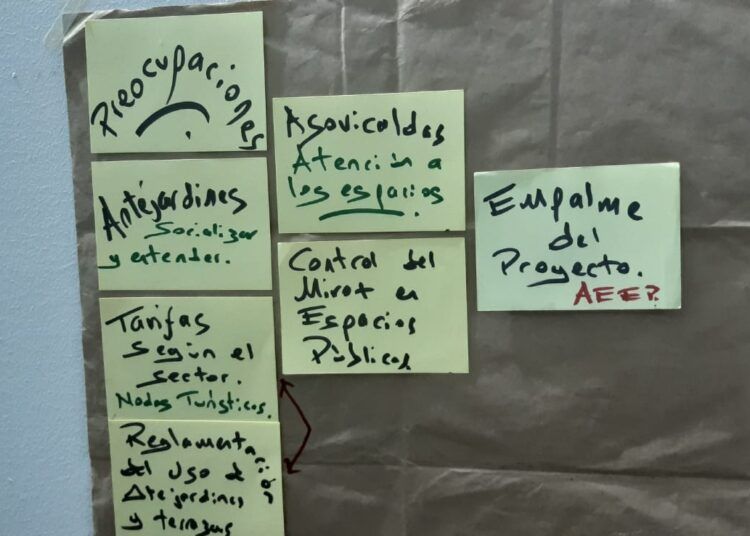 Preocupaciones
Antejardines
Socializar
y entender.
Tarifas
Según el
sector.
Nodos Turísticos.
Reglamentación
del Uso de
Antejardines
y terrazas
Asovicaldas
Atención a
los espacios
Control del
Mirot en
Espacios
Públicos
Empalme
del
Proyecto.
AEEP.